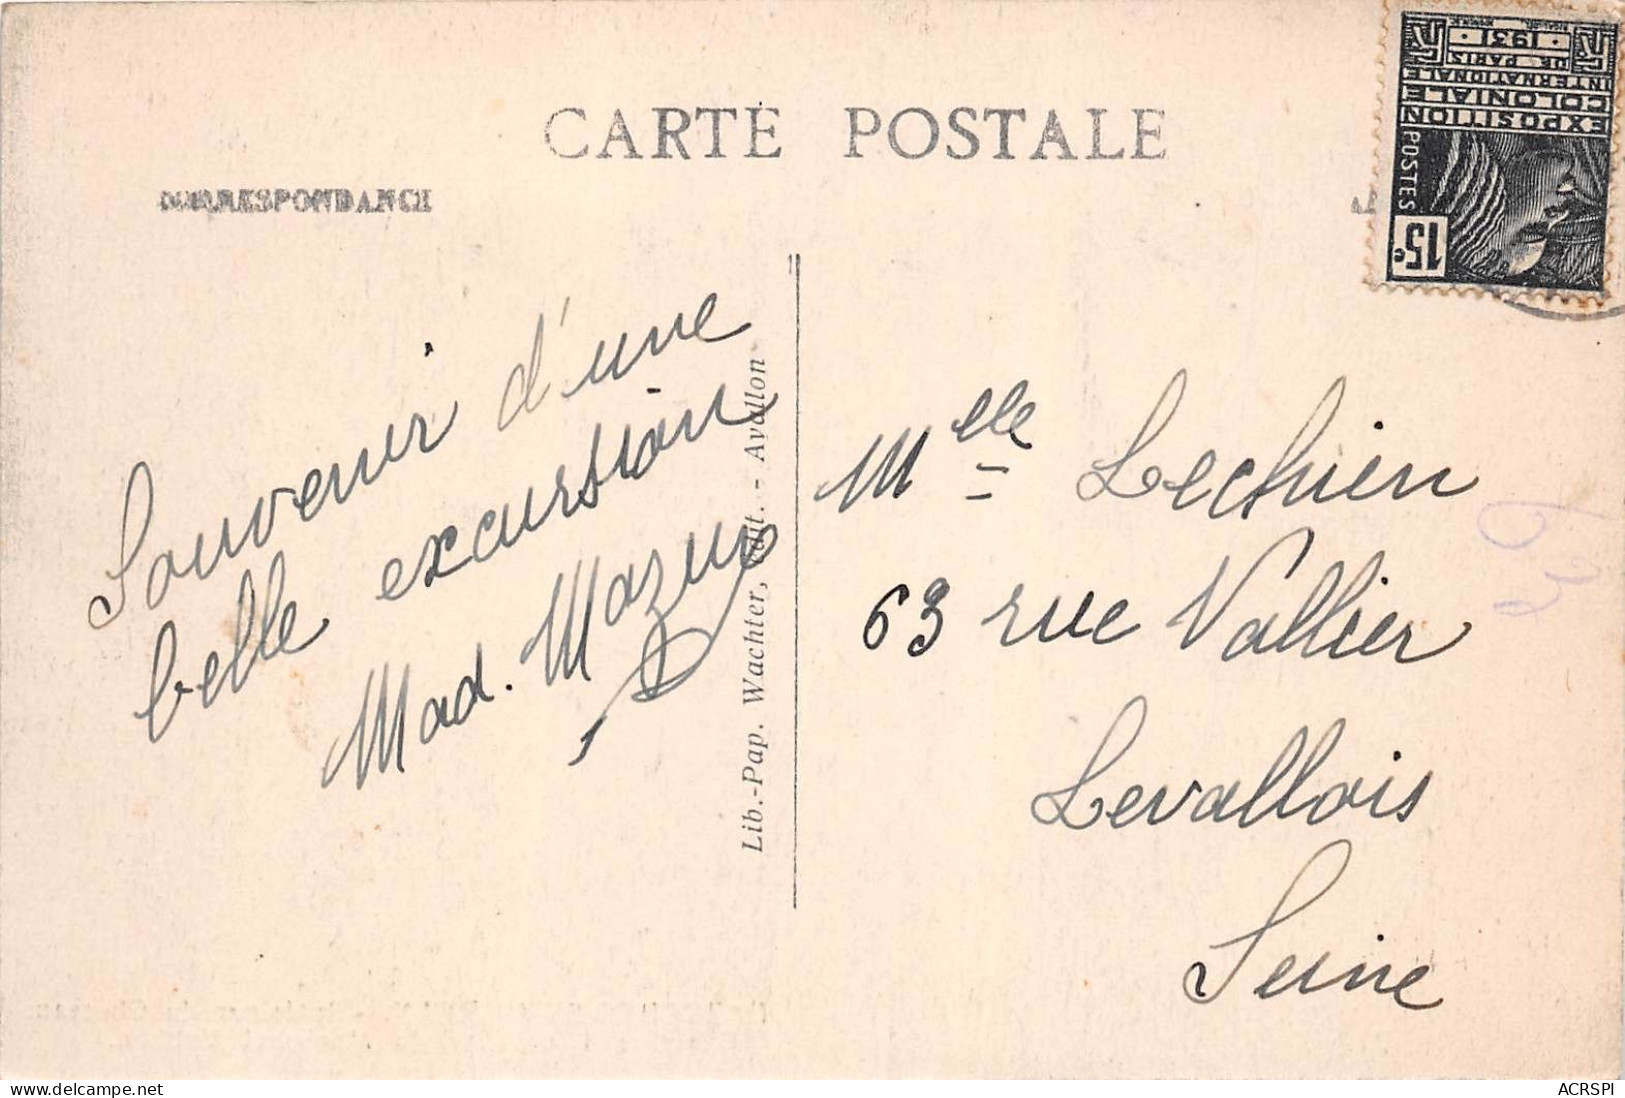 CARTE POSTALE
CORRESPONDANCE
Souvenir d'une
belle excursion
Mad. Mazus
Lib.-Pap. Wachter, Edit. - Avallon
Mlle Lechien
63 rue Vallier
Levallois
Seine
EXPOSITION
COLONIALE
INTERNATIONALE
DE PARIS
· 1931 ·
POSTES
15c
www.delcampe.net
ACRSPI